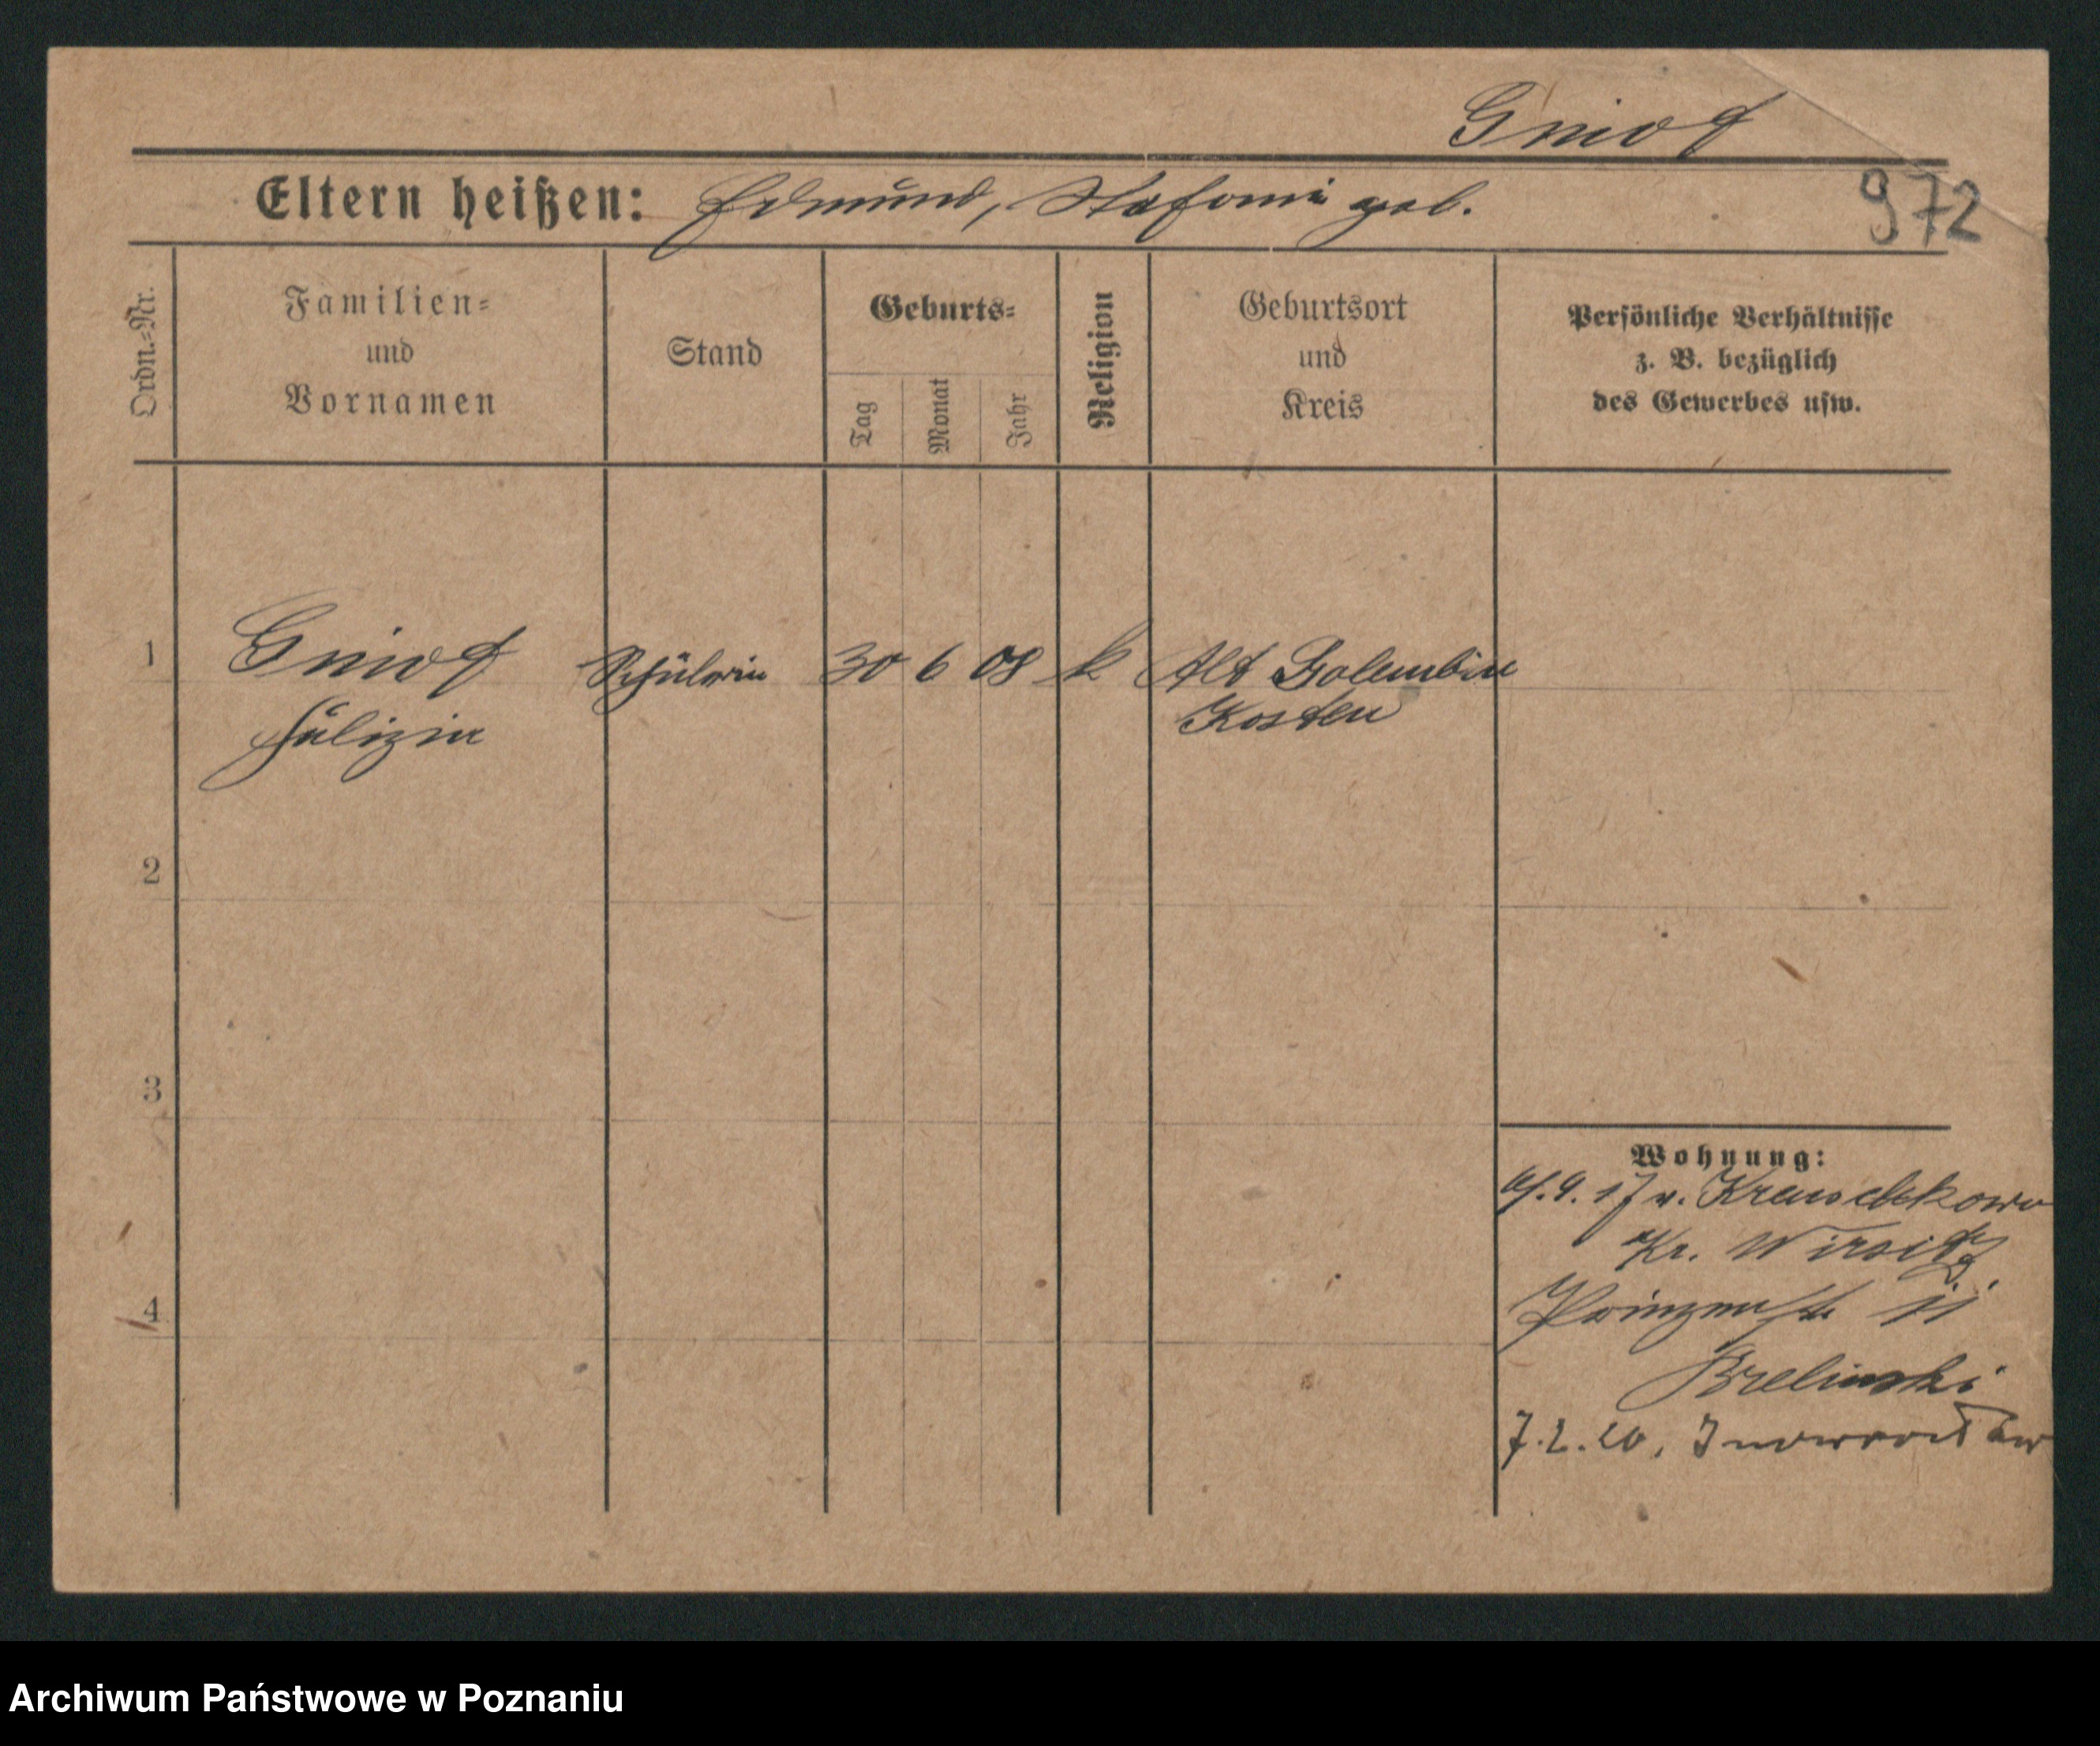 Gniot
Eltern heißen: Edmund, Stefanie geb.
972
Ordn.-Nr.
Familien-
und
Vornamen
Stand
Geburts-
Tag
Monat
Jahr
Religion
Geburtsort
und
Kreis
Persönliche Verhältnisse
z. B. bezüglich
des Gewerbes usw.
1
Gniot Schülerin 30 6 08 k Alt Golembin
Kosten
2
3
4
Wohnung:
9. 17 v.
Kr. Wirsitz
Prinzenstr 11
Brelinski
7.2.20, Inowrocław
Archiwum Państwowe w Poznaniu